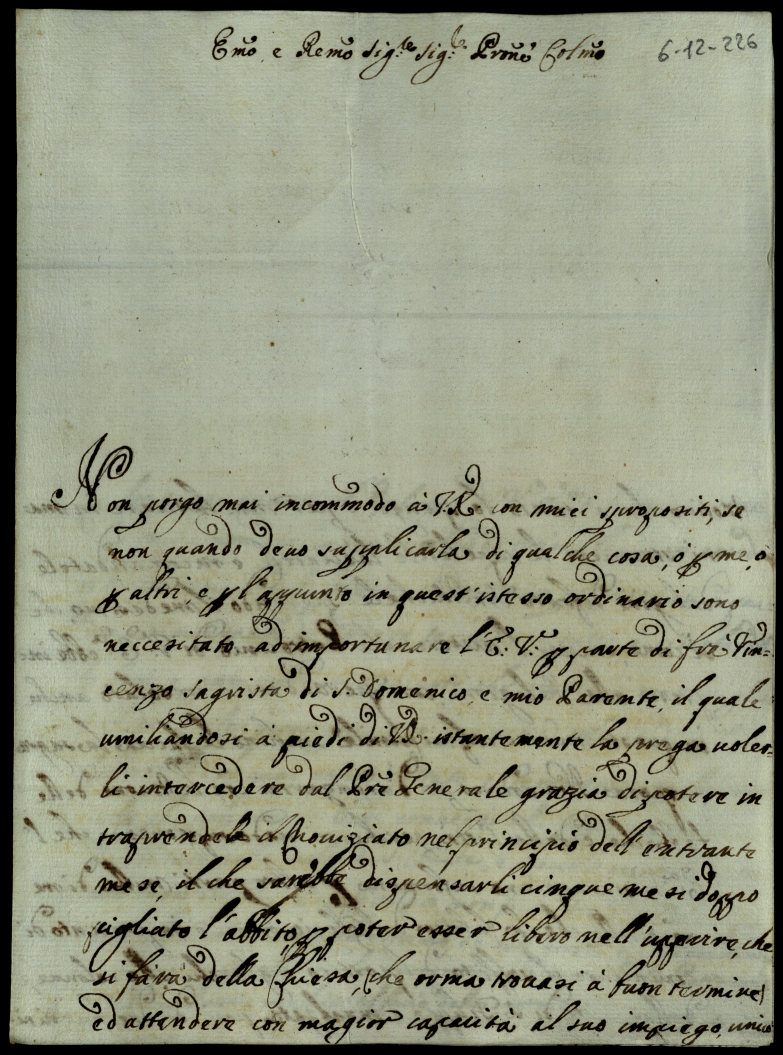 Emo, e Remo sig.re sig.re Prone Colmo 6-12-226
Non porgo mai incommodo à V.E. con miei spropositi, se
non quando devo supplicarla di qualche cosa, ò p me, ò
p altri, e p l'appunto in quest'istesso ordinario sono
neccesitato ad importunare l'E: V: p parte di frà Vin=
cenzo sagrista di S. Domenico, e mio Parente, il quale
umiliandosi à piedi di V.E. istantemente la prega voler=
li intercedere dal Pre Generale grazia di potere in
traprendele il Noviziato nel principio dell'entrante
mese, il che sarebbe dispensarli cinque mesi doppo
pigliato l'abbito, p poter esser libero nell'apperire, che
si farà della Chiesa, (che orma trovasi à buon termine)
ed attendere con magior capacità al suo impiego,